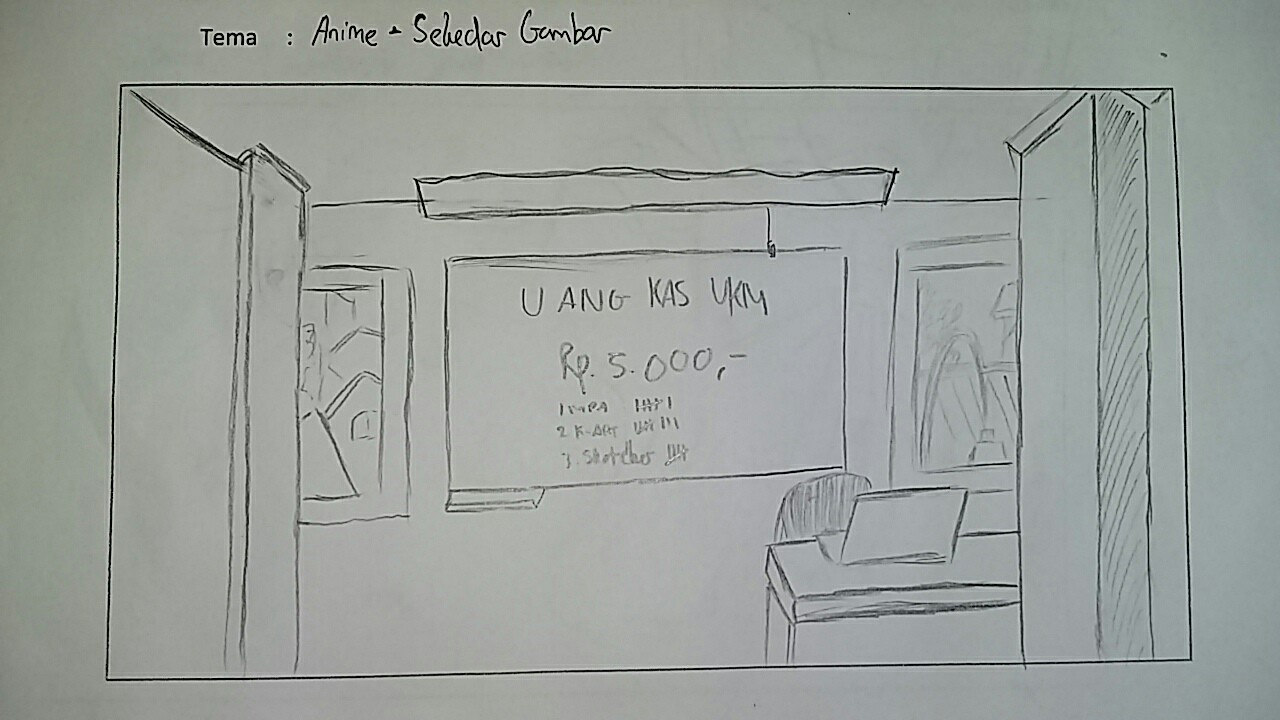 Tema : Anime - Sekedar Gambar
UANG KAS UKM
Rp. 5.000,-
2 K-ART
3. Sketcher